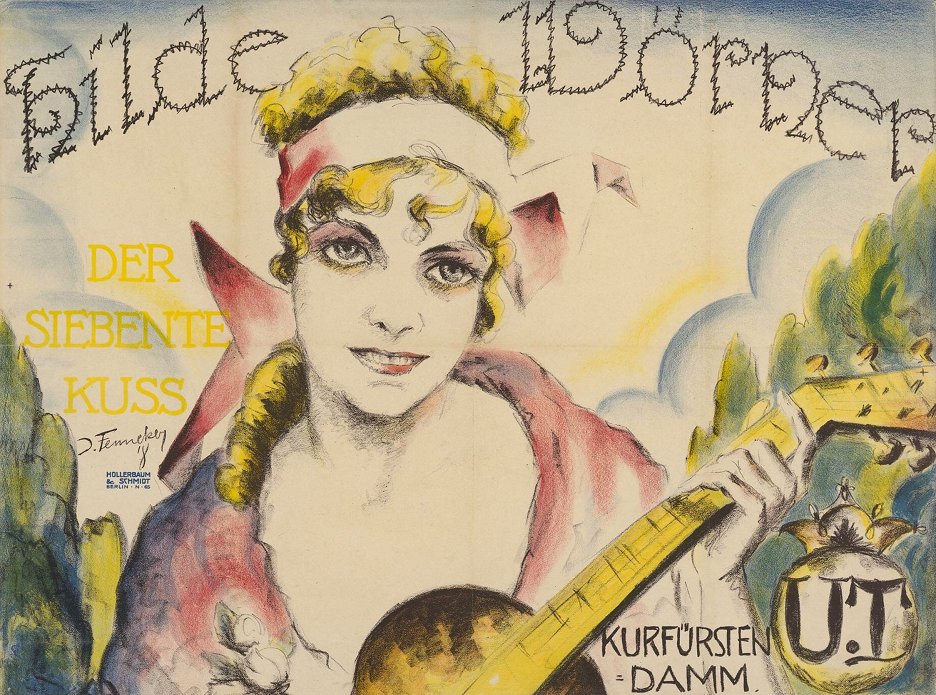 Hilde Wörner
DER
SIEBENTE
KUSS
J. Fenneker
18
HOLLERBAUM
& SCHMIDT
BERLIN · N · 65
U.T
KURFÜRSTEN
=DAMM.